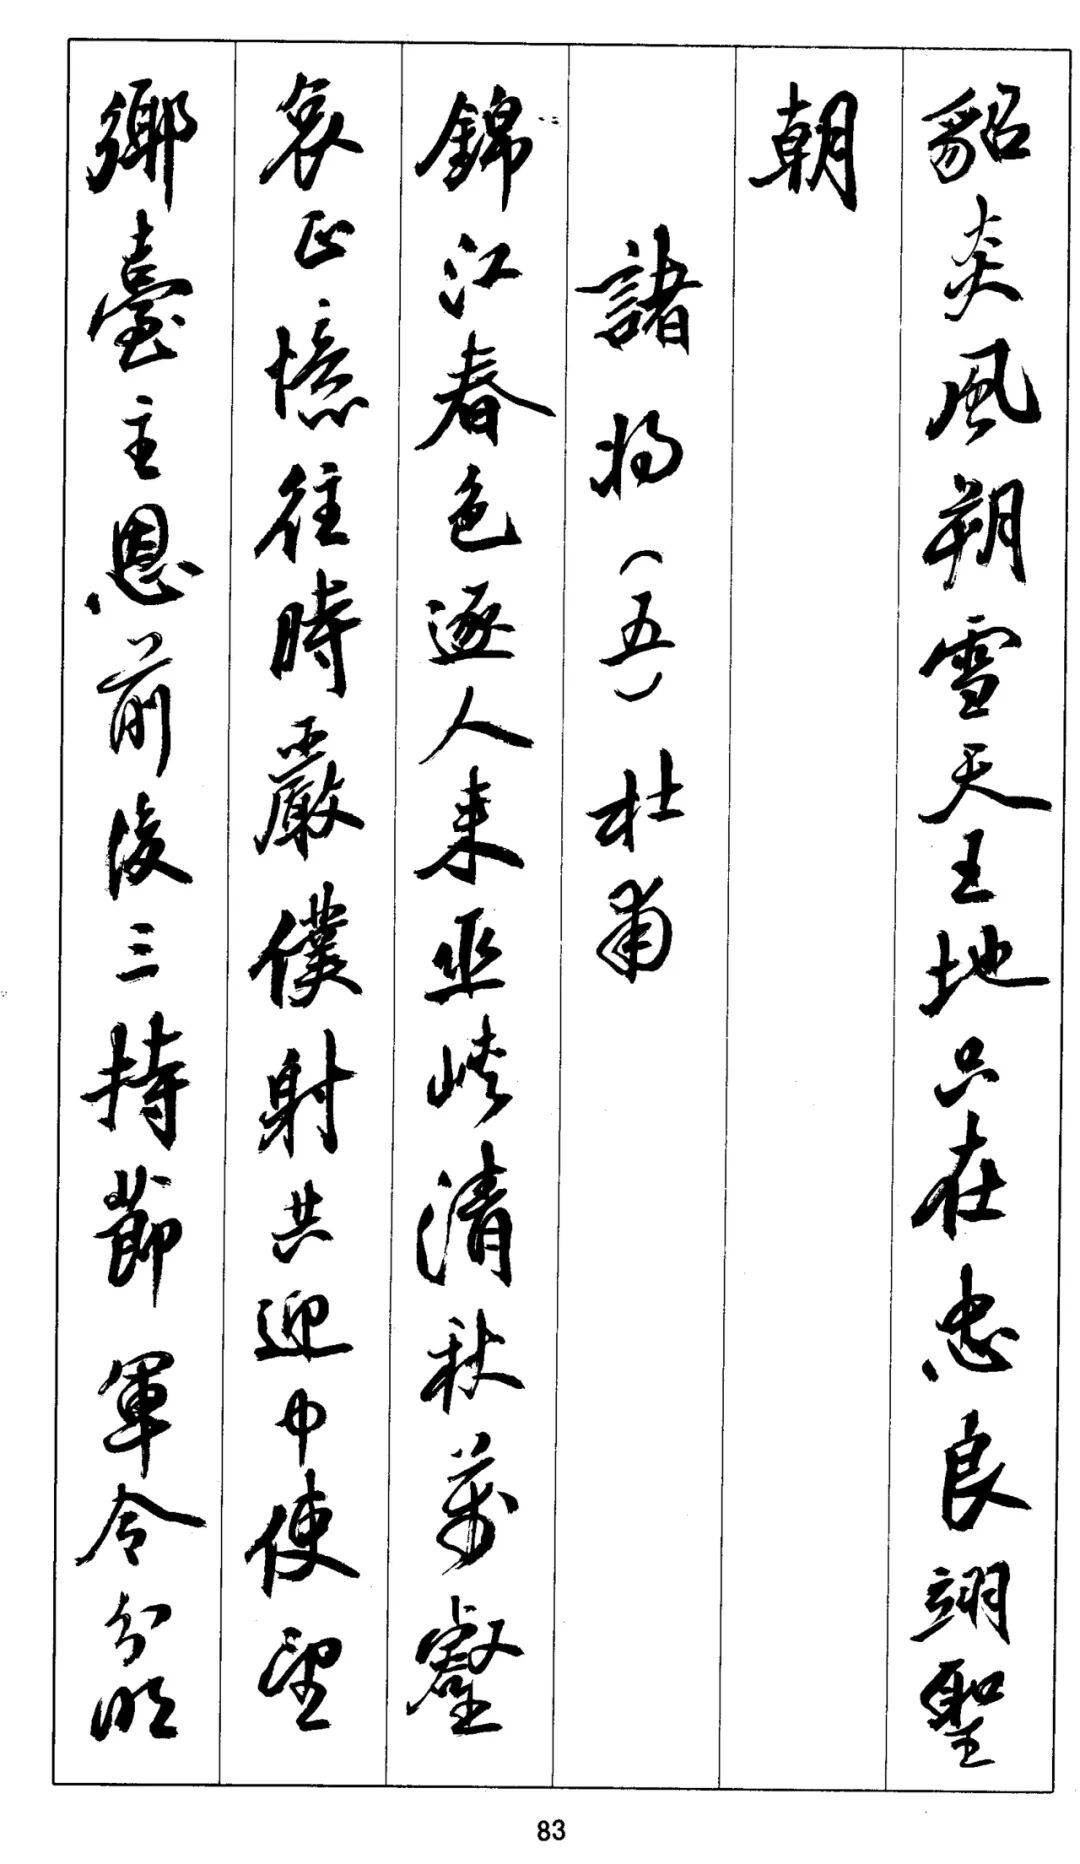 貂炎風朔雪天王地只在忠良翊聖
朝
諸将(五)杜甫
錦江春色逐人来巫峡清秋萬壑
哀正憶往時嚴僕射共迎中使望
鄉臺主恩前後三持節軍令分明
83